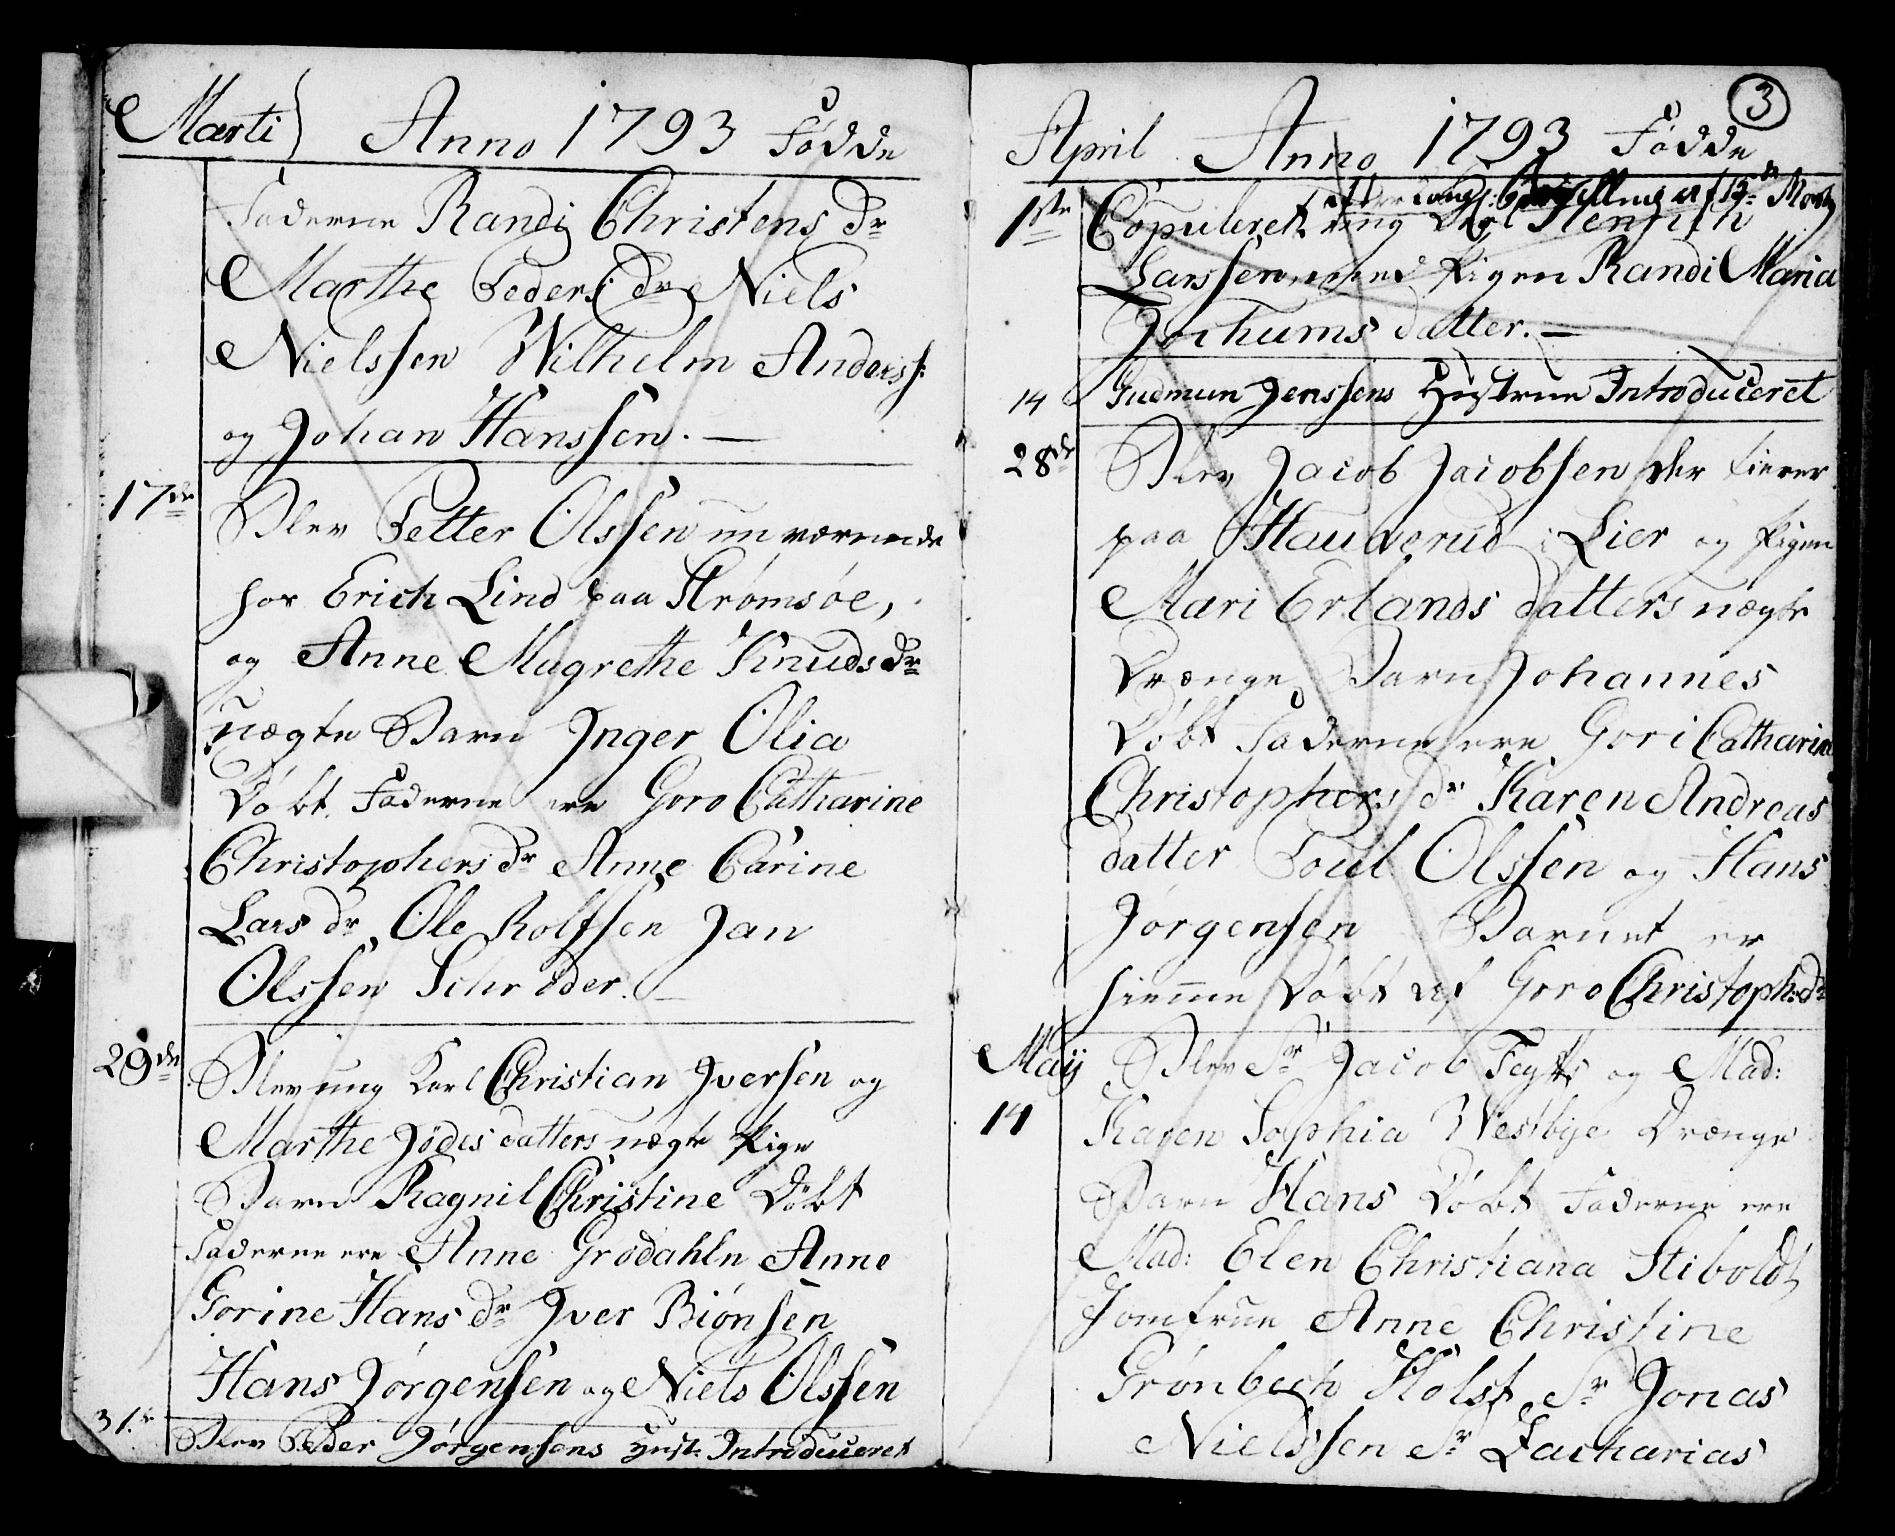 Marti Anno 1793 Fødde
Faderne Randi Christens Dr
Marthe Peders Dr Niels
Nielssen Wilhelm Anderss:
og Johan Hanssen. —
17de Blev Petter Olssen nu værende
hos Erich Lind paa Strømsøe,
og Anne Magrethe Knuds Dr
uægte Barn Inger Olia
Døbt. Faderne ere Goro Catharine
Christophers Dr Anne Carine
Lars Dr Ole Rolfsen Jan
Olssen Schrøder. —
29de Blev ung Karl Christian Iversen og
Marthe Jødis datters uægte Pige
Barn Ragnil Christine Døbt
Faderne ere Anne Grødahln Anne
Gorine Hans Dr Iver Biønsen
Hans Jørgensen og Niels Olssen
31te Blev Peder Jørgensens Hust: Introduceret
3
April Anno 1793 Fødde
1ste Copuleret ung Karl Henrich
af 15de Marti
Larssen med Pigen Randi Maria
Jochums datter. —
14 Gudmun Jenssens Hustrue Introduceret
28de Blev Jacob Jacobsen der tiener
paa Hauverud i Lier og Pigen
Mari Erlands datters uægte
Drænge Barn Johannes
Døbt Faderne ere Gori Catharine
Christophers dr Karen Andreas
datter Poul Olssen og Hans
Jørgensen Barnet er
hiemme Døbt af Goro Christoph: Dr
Maij Blev Sr Jacob Fegts og Mad:
14 Karen Sophia Westbye Drænge
Barn Hans Døbt Faderne ere
Mad: Elen Christiana Stiboldt
Jomfrue Anne Christine
Grønbech Holst Sr Jonas
Nielssen Sr Zacharias